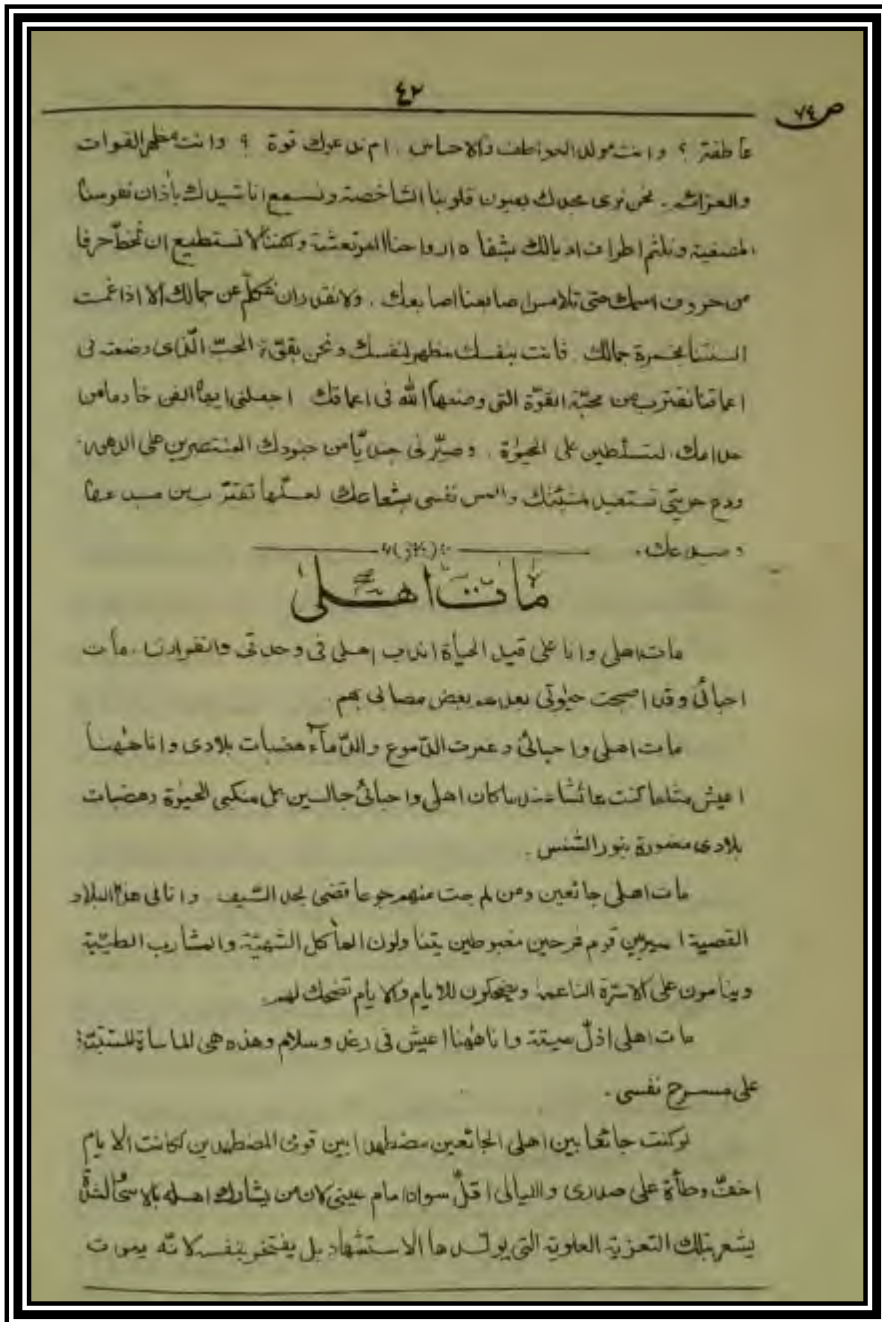 ٤٢
ص ٧٤
عاطفة ؟ وانت مولد العواطف والاحساس . ام ندعوك قوة ؟ وانت مظهر القوات
والعزائم . نحن نرى مجدك بعيون قلوبنا الشاخصة ونسمع اناشيدك بأذان نفوسنا
المصغية ونلثم اطراف اذيالك بشفاه ارواحنا المرتعشة ولكننا لا نستطيع ان نخطّ حرفا
من حروف اسمك حتى تلامس اصابعنا اصابعك . ولا نقدر ان نتكلّم عن جمالك الا اذا غمست
السنتنا بخمرة جمالك . فانت بنفسك مظهر لنفسك ونحن بقوّة الحبّ الّذى وضعته فى
اعماقنا نقترب من محبّة القوّة التى وضعها الله فى اعماقك اجعلنى ايها الفن خادما من
خدامك المتسلّطين على الحيٰوة . وصيّرنى جنديّا من جنودك المنتصرين على الدهور
ودع حريتى تستعبد لمشيّتك والمس نفسى بشعاعك لعلّها تقترب من
ماتَ اهلى
مات اهلى وانا على قيد الحيأة اندب اهلى فى وحدتى وانفرادى . مات
احبائى وقد اصبحت حيٰوتى بعدهم بعض مصابى بهم .
مات اهلى واحبائى وغمرت الدّموع والدّمآء هضبات بلادى وانا هٰهنا
اعيش مثلما كنت عائشا عندما كان اهلى واحبائى جالسين على منكبى الحيٰوة وهضبات
بلادى مغمورة بنور الشّمس .
مات اهلى جائعين ومن لم يمت منهم جوعا قضى بحد السّيف . وانا فى هذه البلاد
القصية اسير بين قوم فرحين مغبوطين يتناولون المأكل الشهيّة والمشارب الطيّبة
وينامون على الاسرّة الناعمة ويضحكون للايام والايام تضحك لهم .
مات اهلى اذلّ ميتة وانا هٰهنا اعيش فى رغد وسلام وهذه هى المأساة المستتبّة
على مسرح نفسى .
لو كنت جائعا بين اهلى الجائعين مضطهدا بين قومى المضطهدين لكانت الايام
اخفّ وطأة على صدرى والليالى اقلّ سوادا امام عينى لان من يشارك اهله بالاسى والشدّة
يشعر بتلك التعزية العلوية التى يولّدها الاستشهاد بل يفتخر بنفسه لانّه يموت